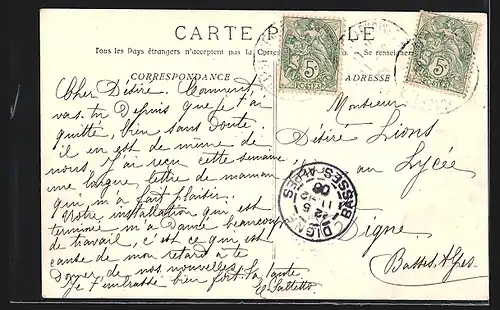 CARTE POSTALE
Tous les Pays étrangers n'acceptent pas la Corres
Se renseigner
CORRESPONDANCE
ADRESSE
5
POSTES
5
POSTES
Cher Désiré. Comment
vas-tu Depuis que je t'ai
quitté, bien sans doute
il en est de même de
nous. J'ai reçu cette semaine
une longue lettre de maman
qui m'a fait plaisir.
Notre installation qui est
terminée m'a donné beaucoup
de travail, c'est ce qui est
cause de mon retard à te
donner de nos nouvelles
Je t'embrasse bien fort. Ta tante
Monsieur
Désiré Lions
au Lycée
Digne
Basses-Alpes
DIGNE
BASSES-ALPES
08